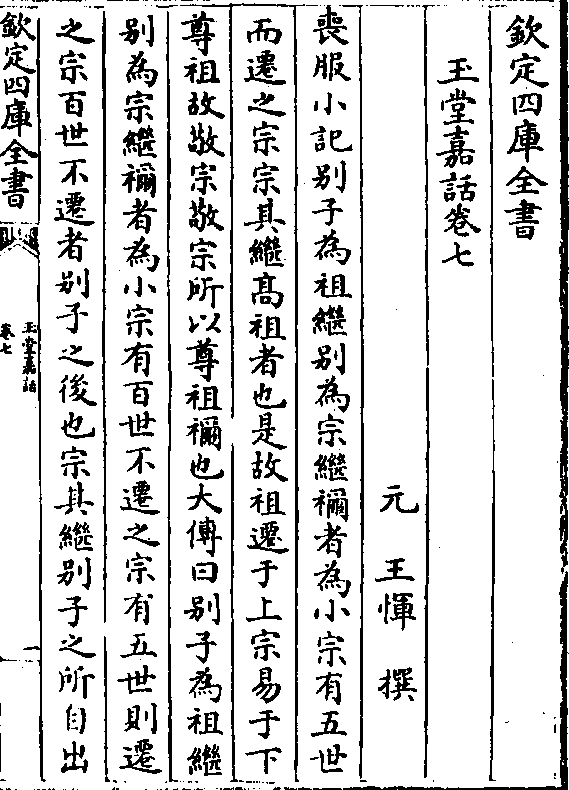 欽定四庫全書
玉堂嘉話卷七
元 王惲 撰
喪服小記别子為祖繼别為宗繼禰者為小宗有五世
而遷之宗宗其繼髙祖者也是故祖遷于上宗易于下
尊祖故敬宗敬宗所以尊祖禰也大傳曰别子為祖繼
别為宗繼禰者為小宗有百世不遷之宗有五世則遷
之宗百世不遷者别子之後也宗其繼别子之所自出
欽定四庫全書
玉堂嘉話
卷七
一